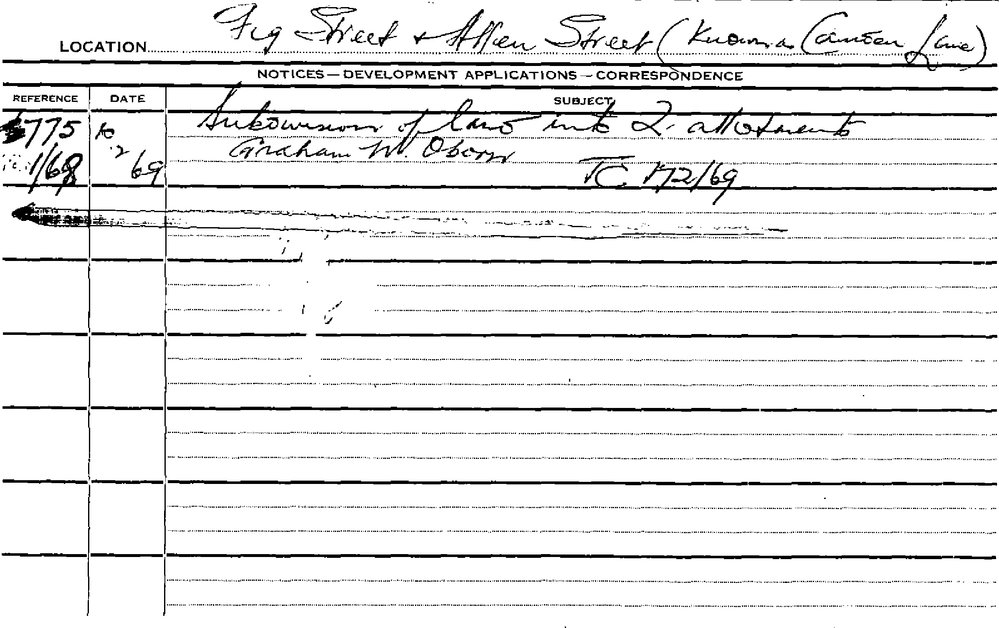 LOCATION Fig Street & Allen Street (Known as Camden Lane)
NOTICES—DEVELOPMENT APPLICATIONS—CORRESPONDENCE
REFERENCE DATE SUBJECT
775 10 Subdivision of land into 2 allotments
1/68 2 69 Graham W. Oborn
TC 172/69